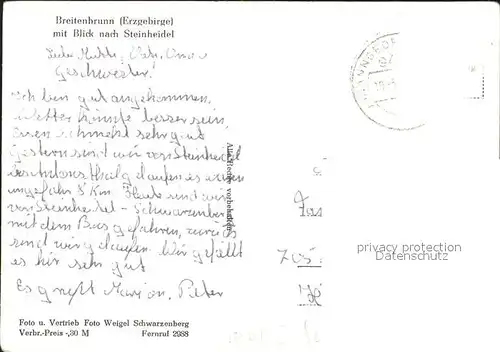 Breitenbrunn (Erzgebirge)
mit Blick nach Steinheidel
Liebe Mutti, Vati, Oma u
Geschwester.
Ich bin gut angekommen,
Wetter könnte besser sein,
Essen schmeckt sehr gut
Gestern sind wir von Steinheidel
laufen es waren
ungefähr 8 Km. Heute sind wir
von Steinheidel - Schwarzenberg
mit dem Bus gefahren, zurück
sind wir gelaufen. Wir gefällt
es hir sehr gut
Es grüßt Marion, Peter
Alle Rechte vorbehalten
Foto u. Vertrieb Foto Weigel Schwarzenberg
Verbr.-Preis -,30 M Fernruf 2988
privacy protection
Datenschutz